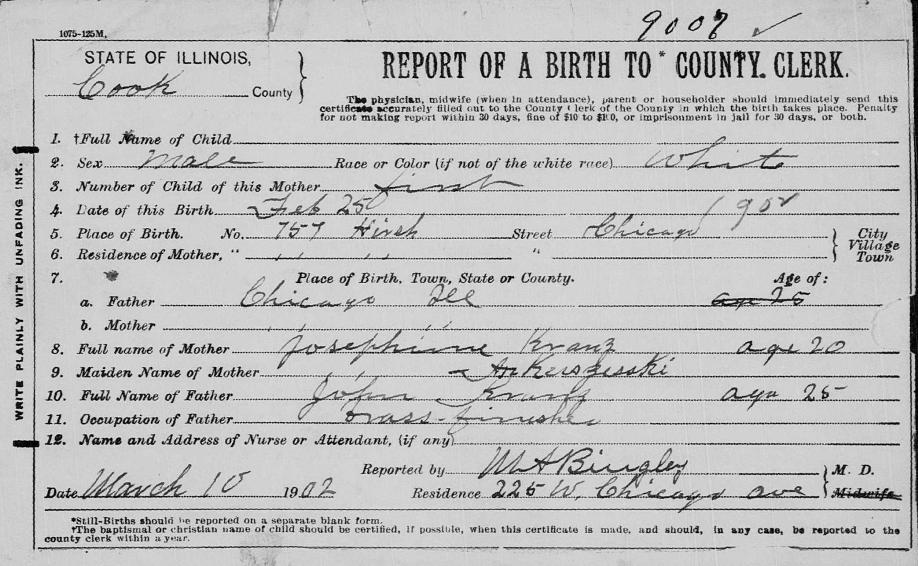 9007 ✓
1075-125M.
STATE OF ILLINOIS,
Cook County
REPORT OF A BIRTH TO COUNTY CLERK.
The physician, midwife (when in attendance), parent or householder should immediately send this
certificate accurately filled out to the County Clerk of the County in which the birth takes place. Penalty
for not making report within 30 days, fine of $10 to $100, or imprisonment in jail for 30 days, or both.
WRITE PLAINLY WITH UNFADING INK.
1. †Full Name of Child
2. Sex Male Race or Color (if not of the white race) White
3. Number of Child of this Mother first
4. Date of this Birth Feb 25 1902
5. Place of Birth. No. 757 Hirsh Street Chicago } City Village Town
6. Residence of Mother, " " " " "
7. * Place of Birth, Town, State or County. Age of:
a. Father Chicago Ill age 25
b. Mother " "
8. Full name of Mother Josephine Kranz age 20
9. Maiden Name of Mother "
10. Full Name of Father John Kranz age 25
11. Occupation of Father brass-finisher
12. Name and Address of Nurse or Attendant, (if any)
Reported by M A Bingley } M. D.
Date March 10 1902 Residence 225 W. Chicago ave Midwife
*Still-Births should be reported on a separate blank form.
†The baptismal or christian name of child should be certified, if possible, when this certificate is made, and should, in any case, be reported to the
county clerk within a year.